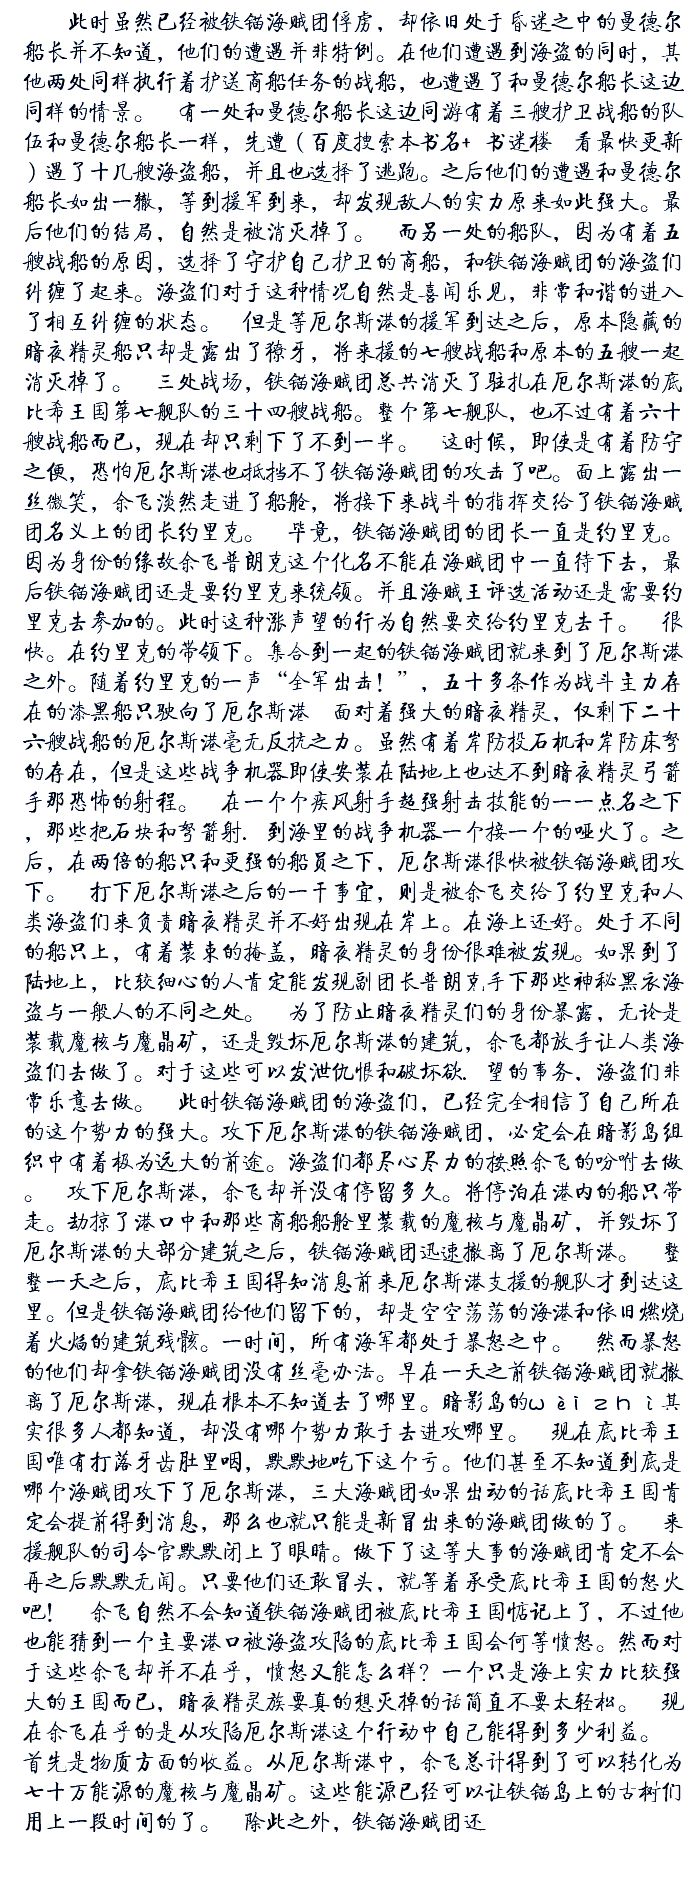 此时虽然已经被铁锚海贼团俘虏，却依旧处于昏迷之中的曼德尔
船长并不知道，他们的遭遇并非特例。在他们遭遇到海盗的同时，其
他两处同样执行着护送商船任务的战船，也遭遇了和曼德尔船长这边
同样的情景。 有一处和曼德尔船长这边同游有着三艘护卫战船的队
伍和曼德尔船长一样，先遭（百度搜索本书名+ 书迷楼 看最快更新
）遇了十几艘海盗船，并且也选择了逃跑。之后他们的遭遇和曼德尔
船长如出一辙，等到援军到来，却发现敌人的实力原来如此强大。最
后他们的结局，自然是被消灭掉了。 而另一处的船队，因为有着五
艘战船的原因，选择了守护自己护卫的商船，和铁锚海贼团的海盗们
纠缠了起来。海盗们对于这种情况自然是喜闻乐见，非常和谐的进入
了相互纠缠的状态。 但是等厄尔斯港的援军到达之后，原本隐藏的
暗夜精灵船只却是露出了獠牙，将来援的七艘战船和原本的五艘一起
消灭掉了。 三处战场，铁锚海贼团总共消灭了驻扎在厄尔斯港的底
比希王国第七舰队的三十四艘战船。整个第七舰队，也不过有着六十
艘战船而已，现在却只剩下了不到一半。 这时候，即使是有着防守
之便，恐怕厄尔斯港也抵挡不了铁锚海贼团的攻击了吧。面上露出一
丝微笑，余飞淡然走进了船舱，将接下来战斗的指挥交给了铁锚海贼
团名义上的团长约里克。 毕竟，铁锚海贼团的团长一直是约里克。
因为身份的缘故余飞普朗克这个化名不能在海贼团中一直待下去，最
后铁锚海贼团还是要约里克来统领。并且海贼王评选活动还是需要约
里克去参加的。此时这种涨声望的行为自然要交给约里克去干。 很
快。在约里克的带领下。集合到一起的铁锚海贼团就来到了厄尔斯港
之外。随着约里克的一声“全军出击！”，五十多条作为战斗主力存
在的漆黑船只驶向了厄尔斯港 面对着强大的暗夜精灵，仅剩下二十
六艘战船的厄尔斯港毫无反抗之力。虽然有着岸防投石机和岸防床弩
的存在，但是这些战争机器即使安装在陆地上也达不到暗夜精灵弓箭
手那恐怖的射程。 在一个个疾风射手超强射击技能的一一点名之下
，那些把石块和弩箭射．到海里的战争机器一个接一个的哑火了。之
后，在两倍的船只和更强的船员之下，厄尔斯港很快被铁锚海贼团攻
下。 打下厄尔斯港之后的一干事宜，则是被余飞交给了约里克和人
类海盗们来负责暗夜精灵并不好出现在岸上。在海上还好。处于不同
的船只上，有着装束的掩盖，暗夜精灵的身份很难被发现。如果到了
陆地上，比较细心的人肯定能发现副团长普朗克手下那些神秘黑衣海
盗与一般人的不同之处。 为了防止暗夜精灵们的身份暴露，无论是
装载魔核与魔晶矿，还是毁坏厄尔斯港的建筑，余飞都放手让人类海
盗们去做了。对于这些可以发泄仇恨和破坏欲．望的事务，海盗们非
常乐意去做。 此时铁锚海贼团的海盗们，已经完全相信了自己所在
的这个势力的强大。攻下厄尔斯港的铁锚海贼团，必定会在暗影岛组
织中有着极为远大的前途。海盗们都尽心尽力的按照余飞的吩咐去做
。 攻下厄尔斯港，余飞却并没有停留多久。将停泊在港内的船只带
走。劫掠了港口中和那些商船船舱里装载的魔核与魔晶矿，并毁坏了
厄尔斯港的大部分建筑之后，铁锚海贼团迅速撤离了厄尔斯港。 整
整一天之后，底比希王国得知消息前来厄尔斯港支援的舰队才到达这
里。但是铁锚海贼团给他们留下的，却是空空荡荡的海港和依旧燃烧
着火焰的建筑残骸。一时间，所有海军都处于暴怒之中。 然而暴怒
的他们却拿铁锚海贼团没有丝毫办法。早在一天之前铁锚海贼团就撤
离了厄尔斯港，现在根本不知道去了哪里。暗影岛的wèizhi其
实很多人都知道，却没有哪个势力敢于去进攻哪里。 现在底比希王
国唯有打落牙齿肚里咽，默默地吃下这个亏。他们甚至不知道到底是
哪个海贼团攻下了厄尔斯港，三大海贼团如果出动的话底比希王国肯
定会提前得到消息，那么也就只能是新冒出来的海贼团做的了。 来
援舰队的司令官默默闭上了眼睛。做下了这等大事的海贼团肯定不会
再之后默默无闻。只要他们还敢冒头，就等着承受底比希王国的怒火
吧！ 余飞自然不会知道铁锚海贼团被底比希王国惦记上了，不过他
也能猜到一个主要港口被海盗攻陷的底比希王国会何等愤怒。然而对
于这些余飞却并不在乎，愤怒又能怎么样？一个只是海上实力比较强
大的王国而已，暗夜精灵族要真的想灭掉的话简直不要太轻松。 现
在余飞在乎的是从攻陷厄尔斯港这个行动中自己能得到多少利益。
首先是物质方面的收益。从厄尔斯港中，余飞总计得到了可以转化为
七十万能源的魔核与魔晶矿。这些能源已经可以让铁锚岛上的古树们
用上一段时间的了。 除此之外，铁锚海贼团还